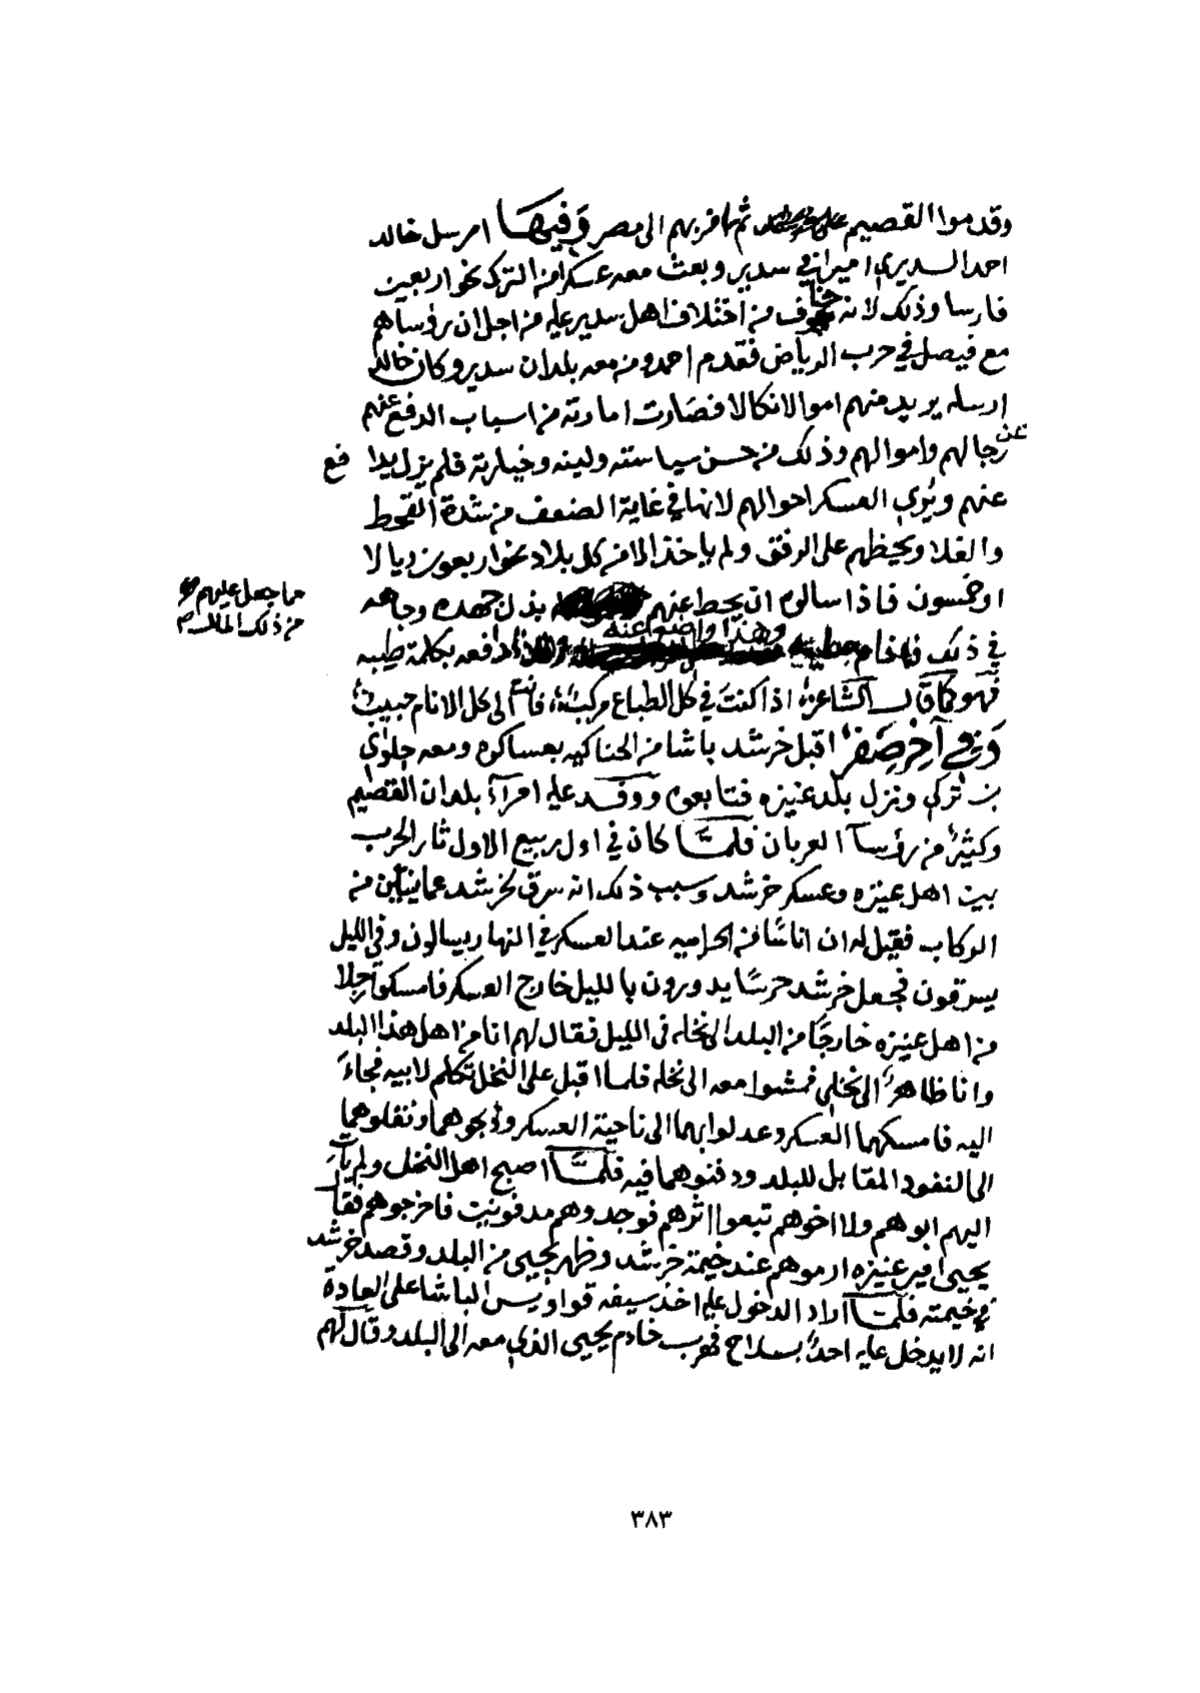 وقدموا القصيم على خرشد ثم سافر بهم الى مصر وفيها ارسل خالد
احمد السديري اميرا في سدير وبعث معه عسكرا من الترك نحو اربعين
فارسا وذلك لانه خاف من اختلاف اهل سدير عليه من اجل ان رؤساهم
مع فيصل في حرب الرياض فقدم احمد ومن معه بلدان سدير وكان خالد
ارسله يريد منهم اموالا نكالا فصارت امارته من اسباب الدفع عنهم
عن رجالهم واموالهم وذلك من حسن سياسته ولينه وخيارته فلم يزل يدافع
عنهم ويُوري العسكر احوالهم لانها في غاية الضعف من شدة القحط
والغلا ويحيظهم على الرفق ولم ياخذ الا من كل بلاد نحو اربعون ريالا
او خمسون فاذا سالوه ان يحط عنهم بذل جهده وجاهه
مما جعل عليهم
من ذلك المال
في ذلك وهذا واضع عنه دافعه بكلمة طيبه
فهو كما قال الشاعر اذا كنتَ في كل الطباع مركبٌ فانت الى كل الانام حبيبٌ
وفي آخر صَفَر اقبل خرشد باشا من الحناكيه بعساكره ومعه جلوي
بن تركي ونزل بلد عنيزه فتابعوه ووفد عليه امرآء بلدان القصيم
وكثيرٌ من رؤسآ العربان فلمَّا كان في اول ربيع الاول ثار الحرب
بين اهل عنيزه وعسكر خرشد وسبب ذلك انه سرق لخرشد عمانيتين من
الركاب فقيل له ان اناسًا من الحراميه عند العسكر في النهار يسالون وفي الليل
يسرقون فجعل خرشد حرسًا يدورون بالليل خارج العسكر فامسكوا رجلا
من اهل عنيزه خارجًا من البلد الى نخله في الليل فقال لهم انا من اهل هذا البلد
وانا ظاهرٌ الى نخلي فمشوا معه الى نخله فلما اقبل على النخل تكلم لابيه فجاءَ
اليه فامسكهما العسكر وعدلوا بهما الى ناحية العسكر وذبحوهما ونقلوهما
الى النفود المقابل للبلد ودفنوهما فيه فلمَّا اصبح اهل النخل ولم يأت
اليهم ابوهم ولا اخوهم تبعوا اثرهم فوجدوهم مدفونين فاخرجوهم فقال
يحيى امير عنيزه ارموهم عند خيمة خرشد وظهر يحيى من البلد وقصد خرشد
في خيمته فلمَّا اراد الدخول عليه اخذ سيفه قواويس الباشا على العادة
انه لا يدخل عليه احدٌ بسلاح فهرب خادم يحيى الذي معه الى البلد وقال لهم
٣٨٣